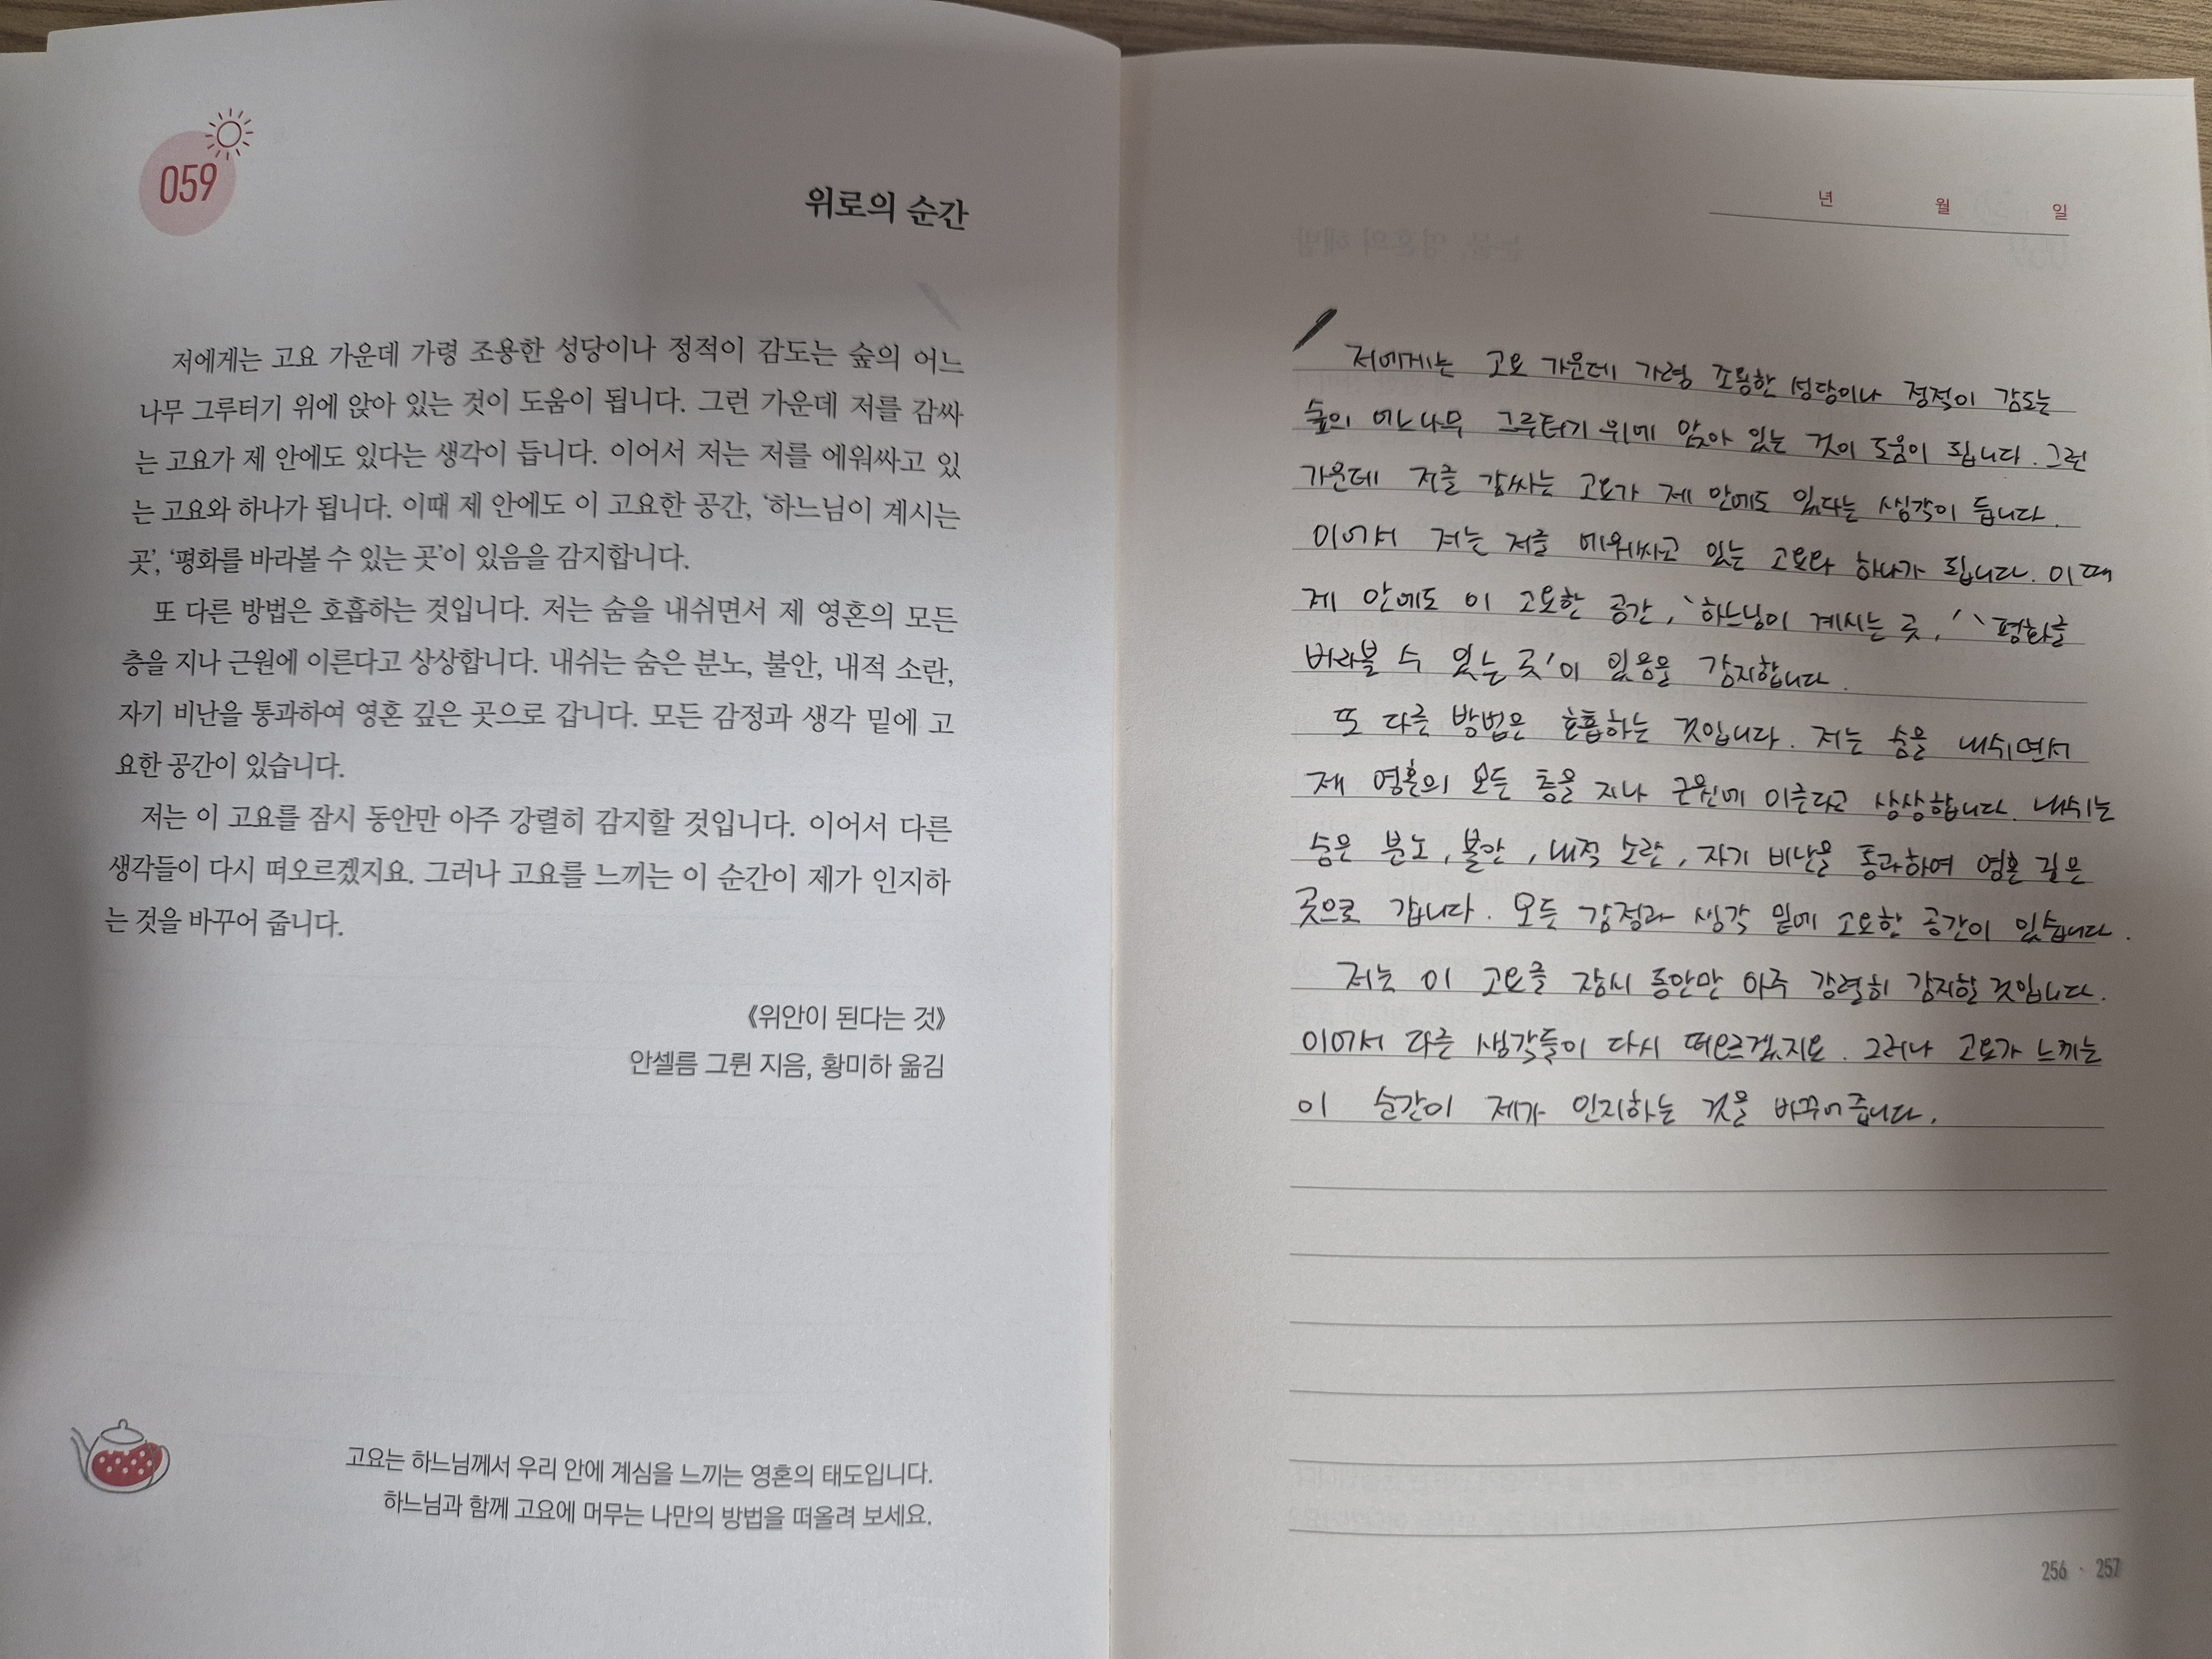 059
위로의 순간
저에게는 고요 가운데 가령 조용한 성당이나 정적이 감도는 숲의 어느
나무 그루터기 위에 앉아 있는 것이 도움이 됩니다. 그런 가운데 저를 감싸
는 고요가 제 안에도 있다는 생각이 듭니다. 이어서 저는 저를 에워싸고 있
는 고요와 하나가 됩니다. 이때 제 안에도 이 고요한 공간, ‘하느님이 계시는
곳’, ‘평화를 바라볼 수 있는 곳’이 있음을 감지합니다.
또 다른 방법은 호흡하는 것입니다. 저는 숨을 내쉬면서 제 영혼의 모든
층을 지나 근원에 이른다고 상상합니다. 내쉬는 숨은 분노, 불안, 내적 소란,
자기 비난을 통과하여 영혼 깊은 곳으로 갑니다. 모든 감정과 생각 밑에 고
요한 공간이 있습니다.
저는 이 고요를 잠시 동안만 아주 강렬히 감지할 것입니다. 이어서 다른
생각들이 다시 떠오르겠지요. 그러나 고요를 느끼는 이 순간이 제가 인지하
는 것을 바꾸어 줍니다.
《위안이 된다는 것》
안셀름 그륀 지음, 황미하 옮김
고요는 하느님께서 우리 안에 계심을 느끼는 영혼의 태도입니다.
하느님과 함께 고요에 머무는 나만의 방법을 떠올려 보세요.
년 월 일
저에게는 고요 가운데 가령 조용한 성당이나 정적이 감도는
숲의 어느 나무 그루터기 위에 앉아 있는 것이 도움이 됩니다. 그런
가운데 저를 감싸는 고요가 제 안에도 있다는 생각이 듭니다.
이어서 저는 저를 에워싸고 있는 고요와 하나가 됩니다. 이때
제 안에도 이 고요한 공간, ‘하느님이 계시는 곳,’ ‘평화를
바라볼 수 있는 곳’이 있음을 감지합니다.
또 다른 방법은 호흡하는 것입니다. 저는 숨을 내쉬면서
제 영혼의 모든 층을 지나 근원에 이른다고 상상합니다. 내쉬는
숨은 분노, 불안, 내적 소란, 자기 비난을 통과하여 영혼 깊은
곳으로 갑니다. 모든 감정과 생각 밑에 고요한 공간이 있습니다.
저는 이 고요를 잠시 동안만 아주 강렬히 감지할 것입니다.
이어서 다른 생각들이 다시 떠오르겠지요. 그러나 고요가 느끼는
이 순간이 제가 인지하는 것을 바꾸어줍니다.
256 · 257